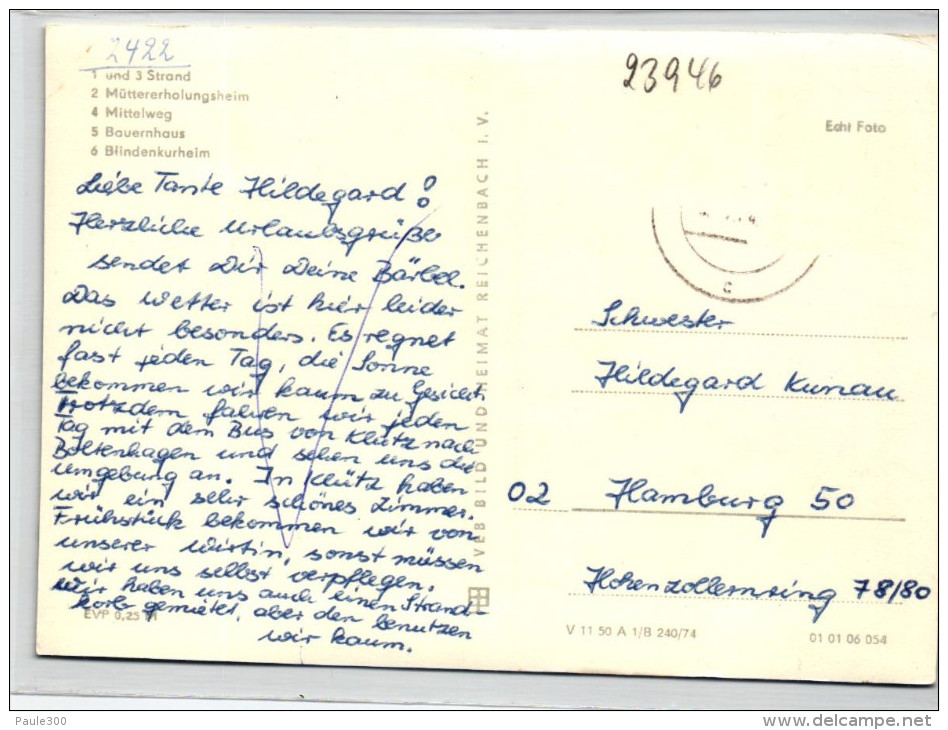 2422
1 und 3 Strand
2 Müttererholungsheim
4 Mittelweg
5 Bauernhaus
6 Blindenkurheim
Liebe Tante Hildegard!
Herzliche Urlaubsgrüße
sendet Dir Deine Bärbel.
Das Wetter ist hier leider
nicht besonders. Es regnet
fast jeden Tag, die Sonne
bekommen wir kaum zu Gesicht.
Trotzdem fahren wir jeden
Tag mit dem Bus von Klütz nach
Boltenhagen und sehen uns die
Umgebung an. In Klütz haben
wir ein sehr schönes Zimmer.
Frühstück bekommen wir von
unserer Wirtin, sonst müssen
wir uns selbst verpflegen.
Wir haben uns auch einen Strand-
korb gemietet, aber den benutzen
wir kaum.
EVP 0,25 M
VEB BILD UND HEIMAT REICHENBACH I. V.
23946
Echt Foto
c
Schwester
Hildegard Kunau
02 Hamburg 50
Hohenzollernring 78/80
V 11 50 A 1/B 240/74
01 01 06 054
Paule300
www.delcampe.net